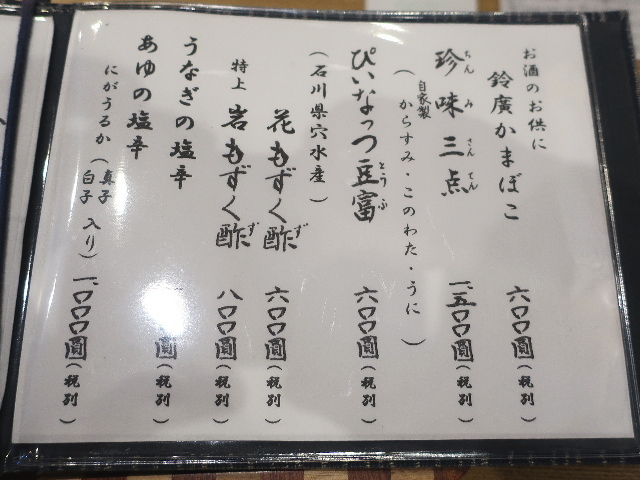 お酒のお供に
鈴廣かまぼこ 六〇〇圓（税別）
珍味三点 一、五〇〇圓（税別）
ちんみさんてん
（自家製からすみ・このわた・うに）
ぴいなっつ豆富 六〇〇圓（税別）
とうふ
（石川県穴水産）
花もずく酢 六〇〇圓（税別）
ず
特上 岩もずく酢 八〇〇圓（税別）
ず
うなぎの塩辛 圓（税別）
あゆの塩辛
にがうるか（真子 白子 入り） 一、〇〇〇圓（税別）